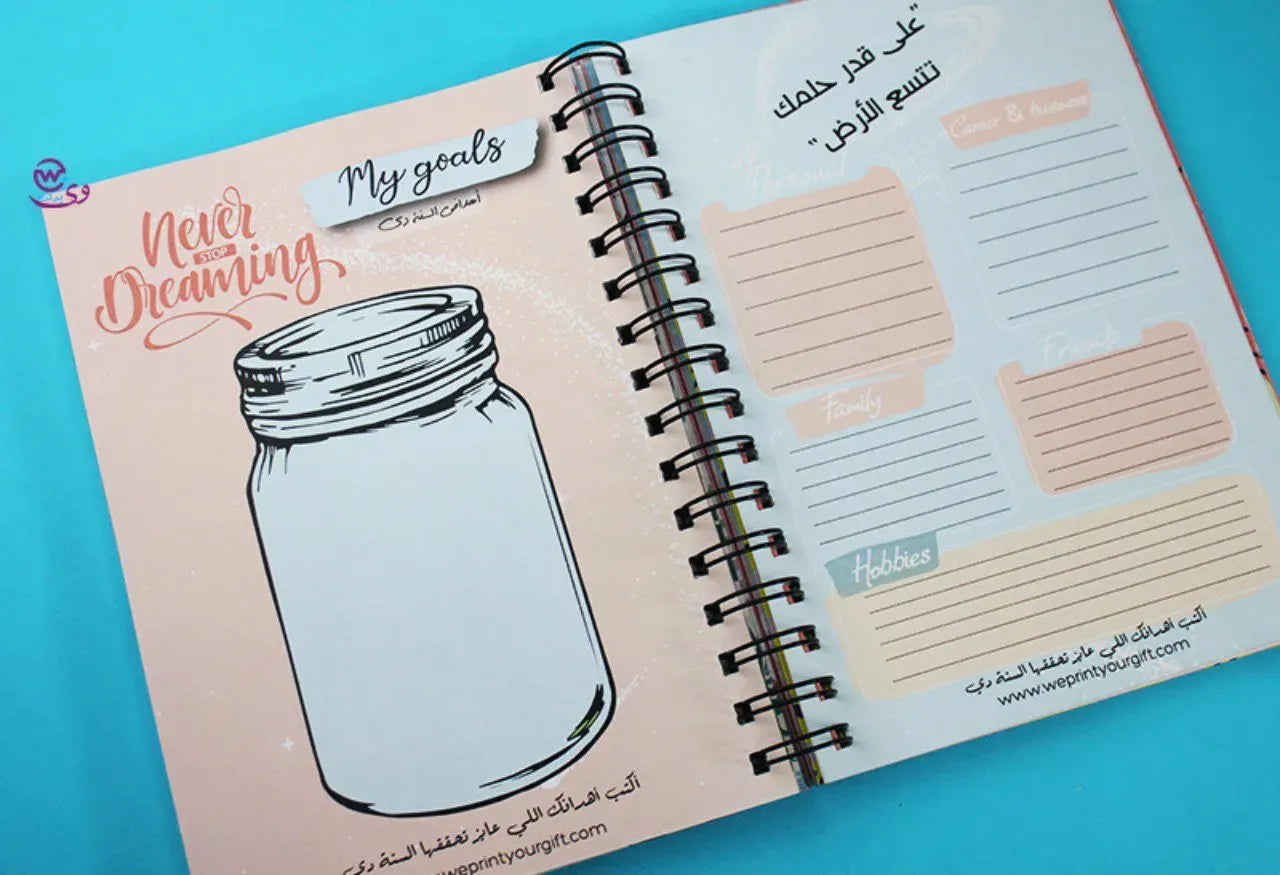 My goals
أهدافى السنة دي
Never
STOP
Dreaming
أكتب أهدافك اللي عايز تحققها السنة دي
weprintyourgift.com
"على قدر حلمك
تتسع الأرض"
Career & business
Personal
Friends
Family
Hobbies
أكتب أهدافك اللي عايز تحققها السنة دي
www.weprintyourgift.com
W
وي